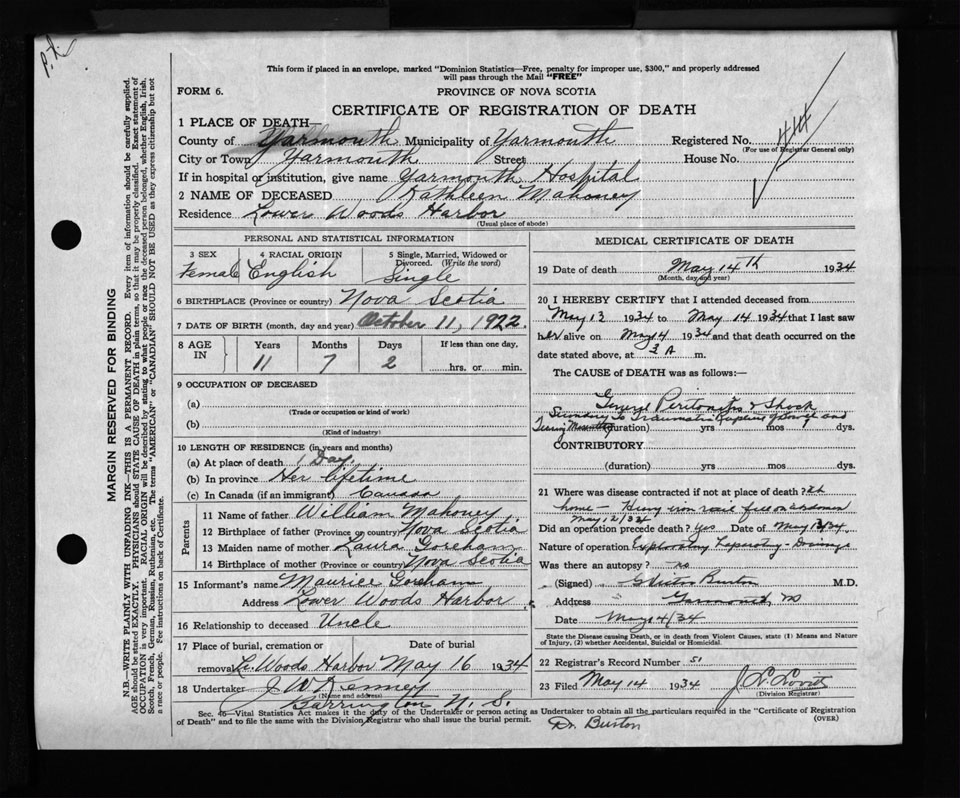 P.L.
This form if placed in an envelope, marked "Dominion Statistics—Free, penalty for improper use, $300," and properly addressed
will pass through the Mail "FREE"
FORM 6.
PROVINCE OF NOVA SCOTIA
CERTIFICATE OF REGISTRATION OF DEATH
1 PLACE OF DEATH—
County of Yarmouth Municipality of Yarmouth Registered No. 414
(For use of Registrar General only)
City or Town Yarmouth Street House No.
If in hospital or institution, give name Yarmouth Hospital
2 NAME OF DECEASED Kathleen Mahoney
Residence Lower Woods Harbor
(Usual place of abode)
MARGIN RESERVED FOR BINDING
N.B.—WRITE PLAINLY WITH UNFADING INK—THIS IS A PERMANENT RECORD. Every item of information should be carefully supplied.
AGE should be stated EXACTLY. PHYSICIANS should STATE CAUSE OF DEATH in plain terms, so that it may be properly classified. Exact statement of
OCCUPATION is very important. RACIAL ORIGIN will be described by stating to what people or race the deceased person belonged, whether English, Irish,
Scotch, French, German, Russian, Ruthenian, etc. The terms "AMERICAN" or "CANADIAN" SHOULD NOT BE USED as they express citizenship but not
a race or people. Fee instructions on back of Certificate.
PERSONAL AND STATISTICAL INFORMATION
3 SEX
Female
4 RACIAL ORIGIN
English
5 Single, Married, Widowed or
Divorced. (Write the word)
Single
6 BIRTHPLACE (Province or country) Nova Scotia
7 DATE OF BIRTH (month, day and year) October 11, 1922.
8 AGE IN Years Months Days If less than one day,
11 7 2 hrs. or min.
9 OCCUPATION OF DECEASED
(a)
(Trade or occupation or kind of work)
(b)
(Kind of industry)
10 LENGTH OF RESIDENCE (in years and months)
(a) At place of death 1 Day.
(b) In province Her lifetime
(c) In Canada (if an immigrant) Canada
Parents
11 Name of father William Mahoney
12 Birthplace of father (Province or country) Nova Scotia
13 Maiden name of mother Laura Goreham
14 Birthplace of mother (Province or country) Nova Scotia
15 Informant's name Maurice Goreham
Address Lower Woods Harbor
16 Relationship to deceased Uncle
17 Place of burial, cremation or Date of burial
removal L. Woods Harbor May 16 1934
18 Undertaker J W Kenney
(Name and address)
Barrington N. S.
MEDICAL CERTIFICATE OF DEATH
19 Date of death May 14th 1934
(Month, day and year)
20 I HEREBY CERTIFY that I attended deceased from
May 13 1934 to May 14 1934 that I last saw
her alive on May 14 1934 and that death occurred on the
date stated above, at 3 A m.
The CAUSE of DEATH was as follows:—
General Peritonitis & Shock
to Traumatic Rupture of Bowel and
(duration) yrs mos dys.
CONTRIBUTORY
(duration) yrs mos dys.
21 Where was disease contracted if not at place of death? at
home — Heavy iron rail fell on abdomen
May 12/34
Did an operation precede death? Yes Date of May 13/34
Nature of operation Exploratory Laparotomy - Drainage
Was there an autopsy? no
(Signed) Burton M.D.
Address Yarmouth, NS
Date May 14/34
State the Disease causing Death, or in death from Violent Causes, state (1) Means and Nature
of Injury, (2) whether Accidental, Suicidal or Homicidal.
22 Registrar's Record Number 51
23 Filed May 14 1934 J. L. Lovitt
(Division Registrar)
Sec. 46—Vital Statistics Act makes it the duty of the Undertaker or person acting as Undertaker to obtain all the particulars required in the "Certificate of Registration
of Death" and to file the same with the Division Registrar who shall issue the burial permit. (OVER)
Dr. Burton